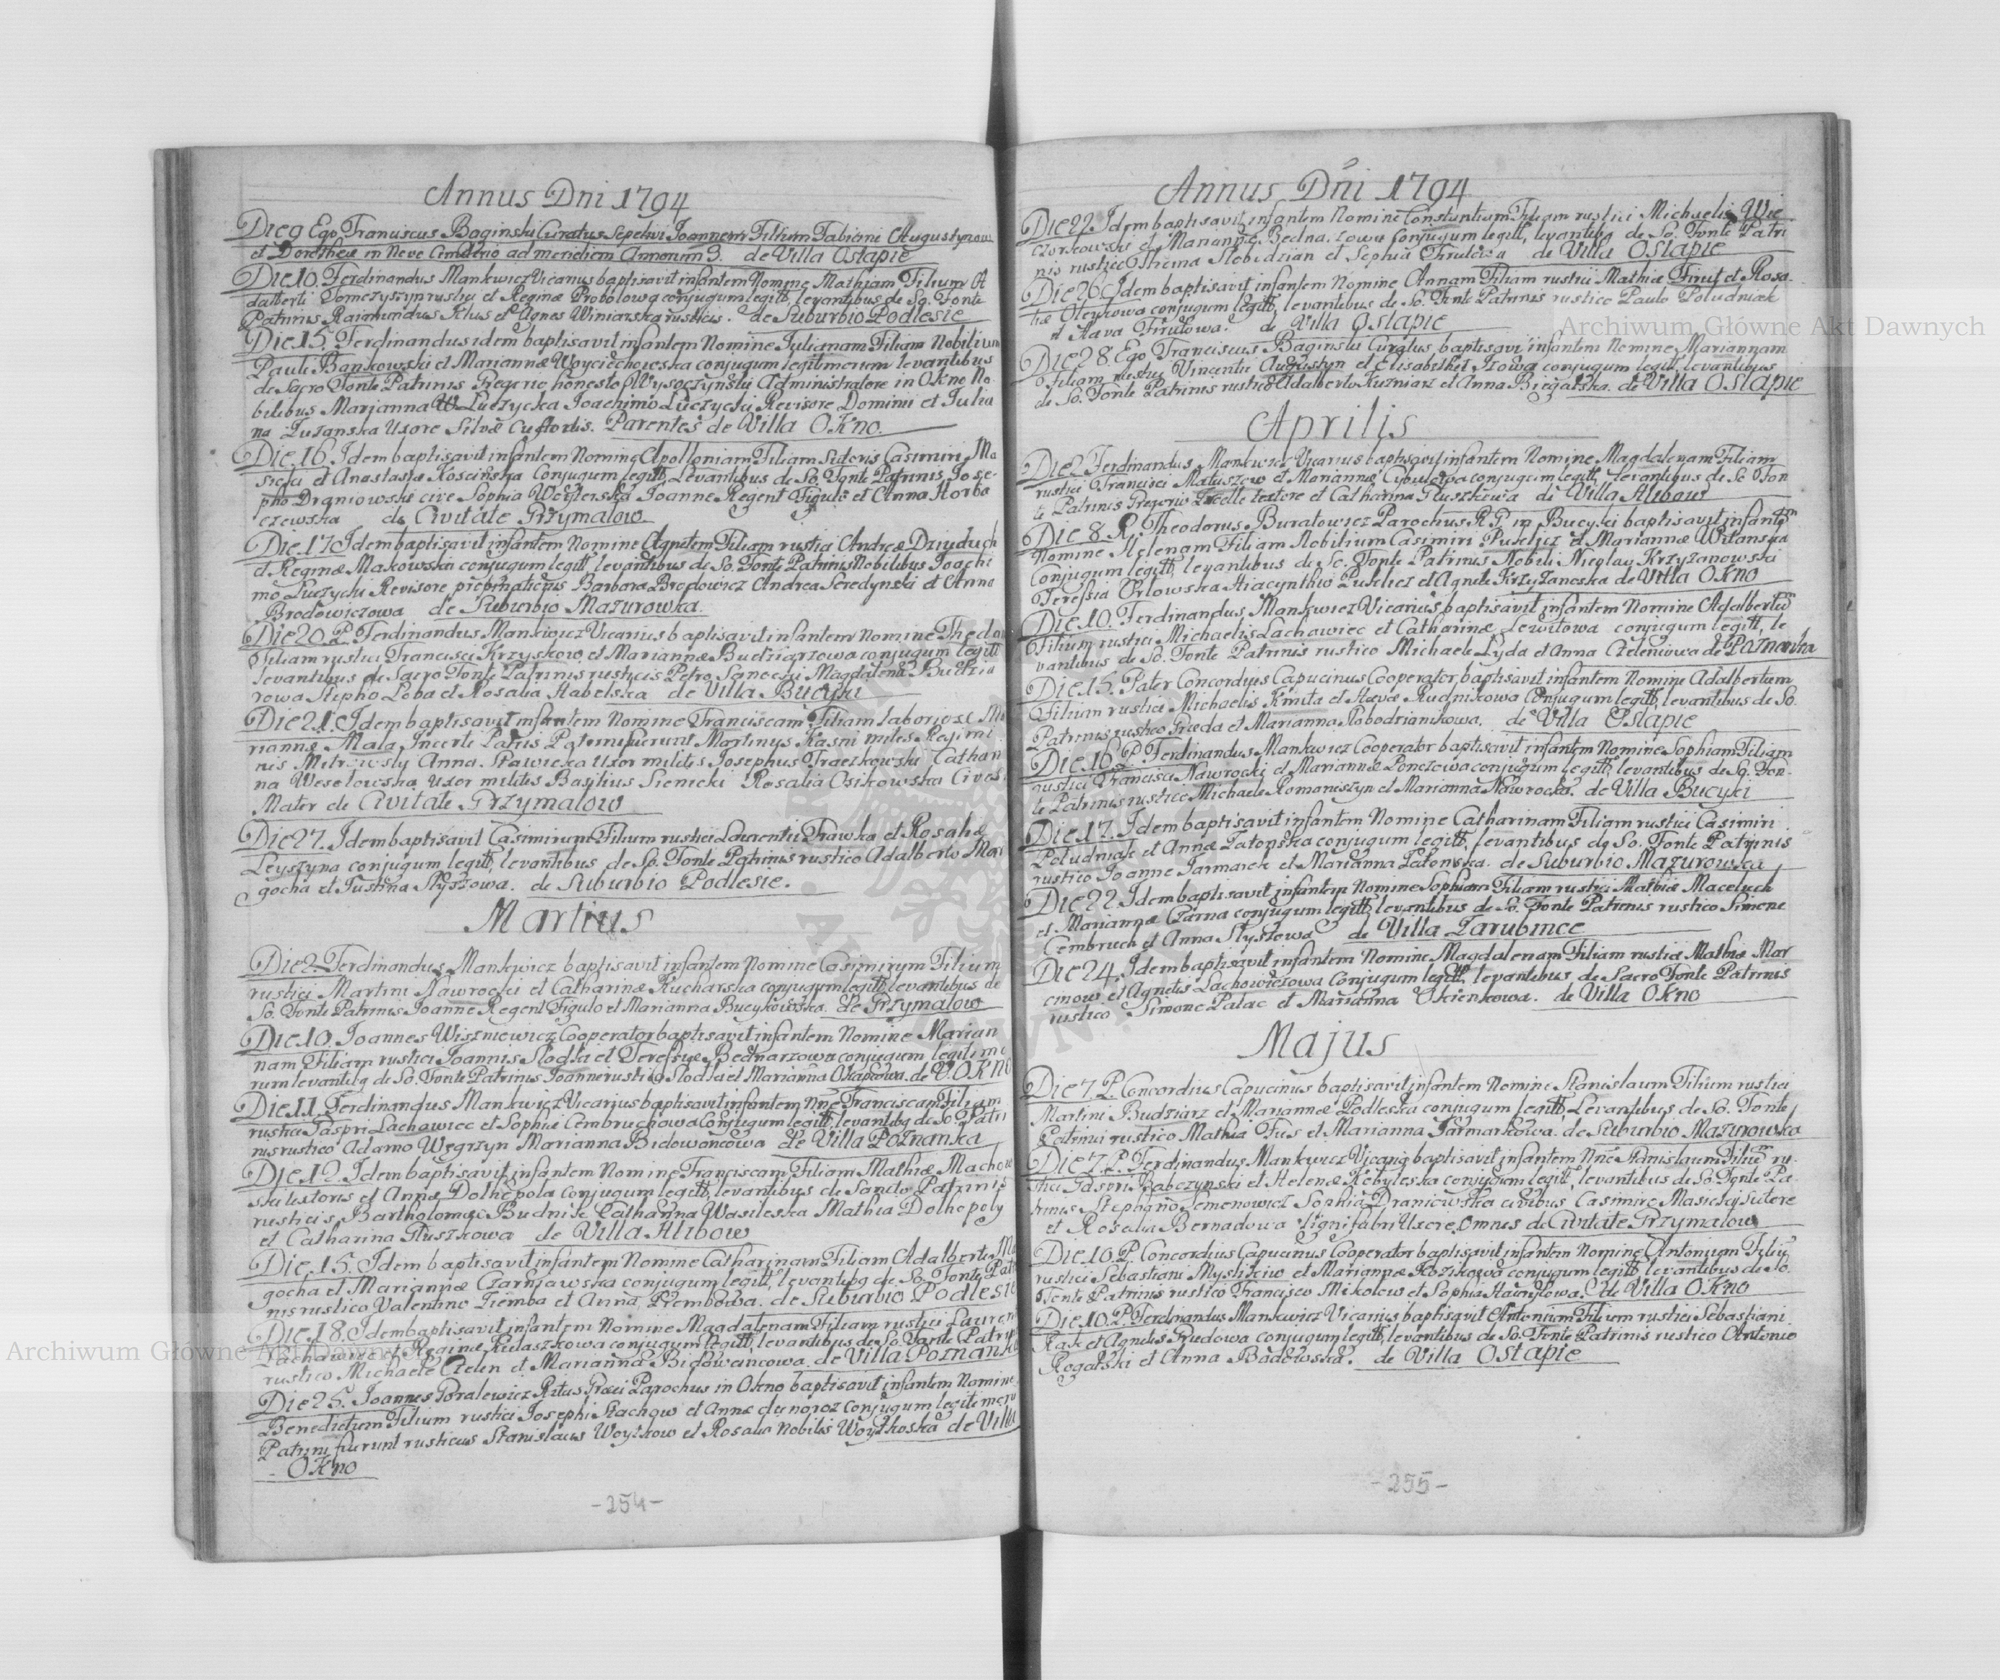 Annus Dni 1794
Die 9 Ego Franciscus Baginski Curatus Sepelivi Joannem Filium Fabiani Augustynow
et Dorotheæ in Novo Cimiterio ad meridiem Annorum 3. de Villa Ostapie
Die 10. Ferdinandus Mankwicz Vicarius baptisavit infantem Nomine Mathiam Filium A
dalberti Tomczyszyn rustici et Reginæ Probolowa conjugum legitt, levantibus de So. Fonte
Patrinis Raimundus Klus et Agnes Winiarska rusticis. de Suburbio Podlesie
Die 15. Ferdinandus idem baptisavit infantem Nomine Julianam Filiam Nobilium
Pauli Bankowski et Mariannæ Woyciechowska conjugum legitimorum levantibus
de Sacro Fonte Patrinis honesto Wysoczynski Administratore in Okno No
bilibus Marjanna Luczycka Joachimo Luczycki Revisore Domini et Julia
na Luzanska Uxore Silvæ Custodis. Parentes de Villa Okno.
Die 16. Idem baptisavit infantem Nomine Apolloniam Filiam Sutoris Casimiri Ma
sicki et Anastasia Koscinska Conjugum legitt, Levantibus de So. Fonte Patrinis Jose-
pho Draniowski cive Sophia Joanne Regent Figulo et Anna Horba
czewska de Civitate Grzymalow
Die 17 Idem baptisavit infantem Nomine Agnetem Filiam rustici Andreæ Dziyduch
et Reginæ Makowska conjugum legitt levantibus de So. Fonte Patrinis Nobilibus Joachi
mo Luczycki Revisore Barbara Brodowicz Andrea Seredynski et Anna
Brodowiczowa de Suburbio Mazurowka.
Die 20. P. Ferdinandus Mankwicz Vicarius baptisavit infantem Nomine
Filiam rustici Francisci Krzyskow et Mariannæ Budziarzowa conjugum legitt
levantibus de Sacro Fonte Patrinis rusticis Petro Sanocki Magdalena Budzia
rowa Stepho Loba et Rosalia Habelska de Villa Bucyki
Die 21. Idem baptisavit infantem Nomine Franciscam Filiam laboriosæ Ma
riannæ Mala Incerti Patris Patrini fuerunt Martinus Kasni miles Regimi
nis Anna Stawicka Uxor militis Josephus Traczkowski Cathari
na Weselowska uxor militis Basilius Sienicki Rosalia Osikowska Cives
Mater de Civitate Grzymalow
Die 27. Idem baptisavit Casimirum Filium rustici Laurentii Trawka et Rosaliæ
Leyszyna conjugum legitt, levantibus de So. Fonte Patrinis rustico Adalberto Mar
gocha et Justina Styszowa. de Suburbio Podlesie.
Martius
Die 2. Ferdinandus Mankwicz baptisavit infantem Nomine Casimirum Filium
rustici Martini Nawrocki et Catharinæ Kucharska conjugum legitt, levantibus de
So. Fonte Patrinis Joanne Regent Figulo et Marianna Bucykowska. de Grzymalow
Die 10. Joannes Wiszniewicz Cooperator baptisavit infantem Nomine Marian
nam Filiam rustici Joannis Slodki et Teressyæ Bednarzowa conjugum legitimo
rum levantibg de So. Fonte Patrinis Joanne rustico Slodki et Marianna Okapcowa. de V. Okno
Die 11. Ferdinandus Mankwicz Vicarius baptisavit infantem Nne Franciscam Filiam
rustici Caspri Lachowiec et Sophiæ Cembruchowa Conjugum legitt, levantibg de So. Patri
nis rustico Adamo Wegrzyn Marianna Bidowancowa de Villa Poznanka
Die 12. Idem baptisavit infantem Nomine Franciscam Filiam Mathiæ Machow
ski textoris et Annæ Dolhopola Conjugum legitt, levantibus de Sancto Patrinis
rusticis Bartholomæo Budnik Catharina Wasileska Mathia Dolhopoly
et Catharina Gluszkowa de Villa Hlibow
Die 15. Idem baptisavit infantem Nomine Catharinam Filiam Adalberti Ma
gocha et Mariannæ Czarnjawska conjugum legitt, levantibg de So. Fonte Patri
nis rustico Valentino Ziemba et Anna Prembowa. de Suburbio Podlesie
Die 18. Idem baptisavit infantem Nomine Magdalenam Filiam rustici Lauren
Lachawiec et Reginæ Kulaszkowa conjugum legitt, levantibus de So. Fonte Patri
rustico Michaele Czelen et Marianna Bidowancowa. de Villa Poznanka
Die 25. Joannes Goralewicz Ritus Græci Parochus in Okno baptisavit infantem Nomine
Benedictum Filium rustici Josephi Stachow et Annæ conjugum legitimoru
Patrini fuerunt rusticus Stanislaus Woytkow et Rosalia Nobilis Woytkoska de Villa
- Okno
- 254 -
Annus Dni 1794
Die 22. Idem baptisavit infantem Nomine Constantiam Filiam rustici Michaelis Wie
czorkowski et Mariannæ Bednarzowa Conjugum legitt, levantibg de So. Fonte Patri
nis rustico Thoma Slobidzian et Sophia Firutowa de Villa Ostapie
Die 26. Idem baptisavit infantem Nomine Annam Filiam rustici Mathiæ Firut et Rosa
liæ Oleyzowa conjugum legitt, levantibus de So. Fonte Patrinis rustico Paulo Poludniak
et Hava Firutowa. de Villa Ostapie
Die 28 Ego Franciscus Baginski Curatus baptisavi infantem Nomine Mariannam
Filiam rustici Vincentii Augustyn et Elisabethæ conjugum legitt, levantibus
de So. Fonte Patrinis rustico Adalberto Kuzniarz et Anna Biegalska. de Villa Ostapie
Aprilis
Die 2 Ferdinandus Mankwicz Vicarius baptisavit infantem Nomine Magdalenam Filiam
rustici Francisci Matuszew et Mariannæ Cybulowa conjugum legitt, levantibus de So Fon
te Patrinis Gregorio textore et Catharina Gluszkowa de Villa Hlibow
Die 8. Theodorus Buratowicz Parochus R.G. in Bucyki baptisavit infantem
Nomine Helenam Filiam Nobilium Casimiri Puselicz et Mariannæ Witanska
Conjugum legitt, levantibus de So. Fonte Patrinis Nobili Nicolay Krzyzanowski
Teressia Orlowska Hiacyntho Puselicz et Agnete Krzyzanoska de Villa Okno
Die 10. Ferdinandus Mankwicz Vicarius baptisavit infantem Nomine Adalbertum
Filium rustici Michaelis Lachawiec et Catharinæ Lewitowa conjugum legitt, le
vantibus de So. Fonte Patrinis rustico Michaele Lyda et Anna Czeleniowa de Poznanka
Die 15. Pater Concordius Capucinus Cooperator baptisavit infantem Nomine Adalbertum
Filium rustici Michaelis Kmita et Havæ Rudnikowa Conjugum legitt, levantibus de So.
Patrinis rustico Greda et Marianna Robodzianikowa. de Villa Ostapie
Die 16. P. Ferdinandus Mankwicz Cooperator baptisavit infantem Nomine Sophiam Filiam
rustici Francisci Nawrocki et Mariannæ Ponczowa conjugum legitt, levantibus de So. Fon
te Patrinis rustico Michaele Romaniszyn et Marianna Nawrocka. de Villa Bucyki
Die 17. Idem baptisavit infantem Nomine Catharinam Filiam rustici Casimiri
Poludniak et Annæ Latonska conjugum legitt, levantibus de So. Fonte Patrinis
rustico Joanne Jarmarek et Marianna Latonska. de Suburbio Mazurowka
Die 22. Idem baptisavit infantem Nomine Sophiam Filiam rustici Mathiæ Maceluch
et Mariannæ Czarna conjugum legitt, levantibus de So. Fonte Patrinis rustico Simone
Cembruch et Anna Styszowa de Villa Zarubince
Die 24. Idem baptisavit infantem Nomine Magdalenam Filiam rustici Mathiæ Mar
cinow et Agnetis Lachowiczowa Conjugum legitt, levantibus de Sacro Fonte Patrinis
rustico Simone Palac et Marianna Okienkowa. de Villa Okno
Majus
Die 7. P. Concordius Capucinus baptisavit infantem Nomine Stanislaum Filium rustici
Martini Budziarz et Mariannæ Podleska conjugum legitt, Levantibus de So. Fonte
Patrini rustico Mathia Fus et Marianna Jarmarkowa. de Suburbio Mazurowka
Die 7. P. Ferdinandus Mankwicz Vicarig baptisavit infantem Nne Stanislaum Filium ru-
stici Caspri Babczynski et Helenæ Kobyleska conjugum legitt, levantibus de So. Fonte Pa-
trinis Stephano Semenowicz Sophia Draniowska civibus Casimiro Masicky Sutore
et Rosalia Bernadowa Lignifabri Uxore. Omnes de Civitate Grzymalow
Die 10. P. Concordius Capucinus Cooperator baptisavit infantem Nomine Antonium Filiu
rustici Sebastiani Mysliciw et Mariannæ Kozikowa conjugum legitt, levantibus de So.
Fonte Patrinis rustico Francisco Mikolow et Sophia Hawrylowa. de Villa Okno
Die 10. P. Ferdinandus Mankwicz Vicarius baptisavit Antonium Filium rustici Sebastiani
Rak et Agnetis Rudowa conjugum legitt, levantibus de So. Fonte Patrinis rustico Antonio
Rogalski et Anna Badowska. de Villa Ostapie
- 255 -
Archiwum Główne Akt Dawnych
Archiwum Główne Akt Dawnych